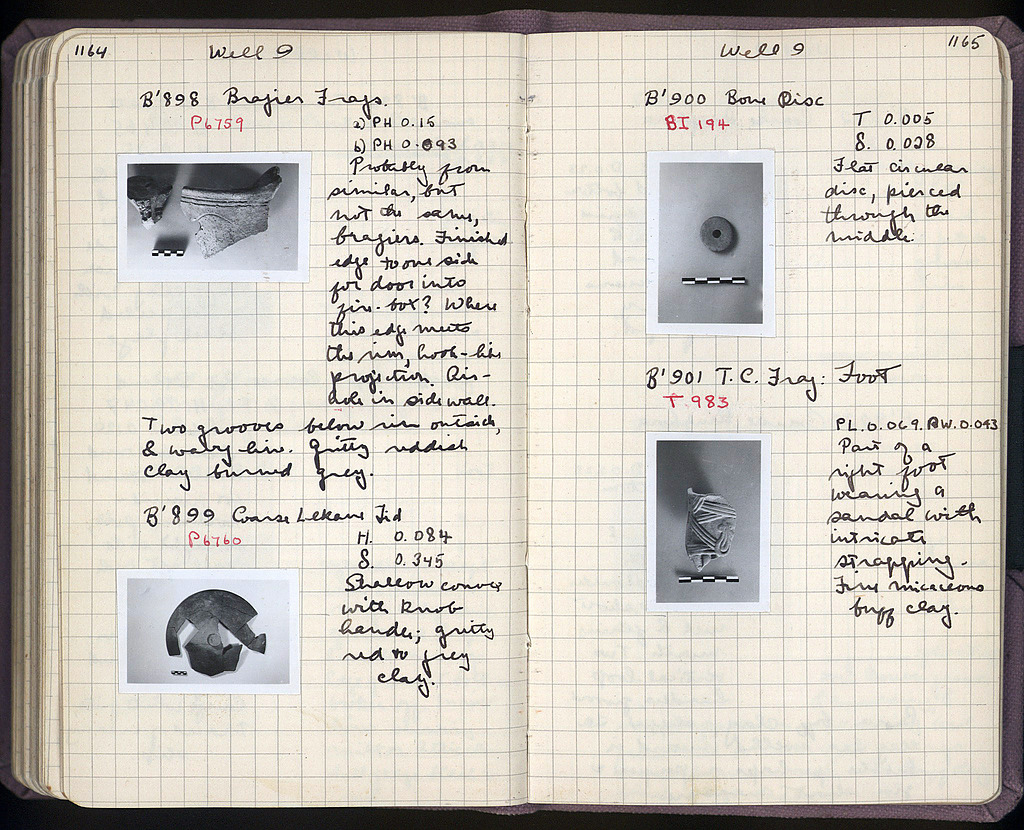 1164
Well 9
B'898 Brazier Frags.
P6759
a) PH 0.15
b) PH 0.093
Probably from
similar, but
not the same,
braziers. Finished
edge to one side
for door into
fire-box? Where
this edge meets
the rim, hook-like
projection. Air-
hole in side wall.
Two grooves below rim outside,
& wavy line. Gritty reddish
clay burned grey.
B'899 Coarse Lekane Lid
P6760
H. 0.084
δ. 0.345
Shallow convex
with knob
handle; gritty
red to grey
clay.
1165
Well 9
B'900 Bone Disc
BI 194
T 0.005
δ. 0.028
Flat circular
disc, pierced
through the
middle.
B'901 T.C. Frag: Foot
T 983
PL. 0.069. PW. 0.043
Part of a
right foot
wearing a
sandal with
intricate
strapping.
Fine micaceous
buff clay.